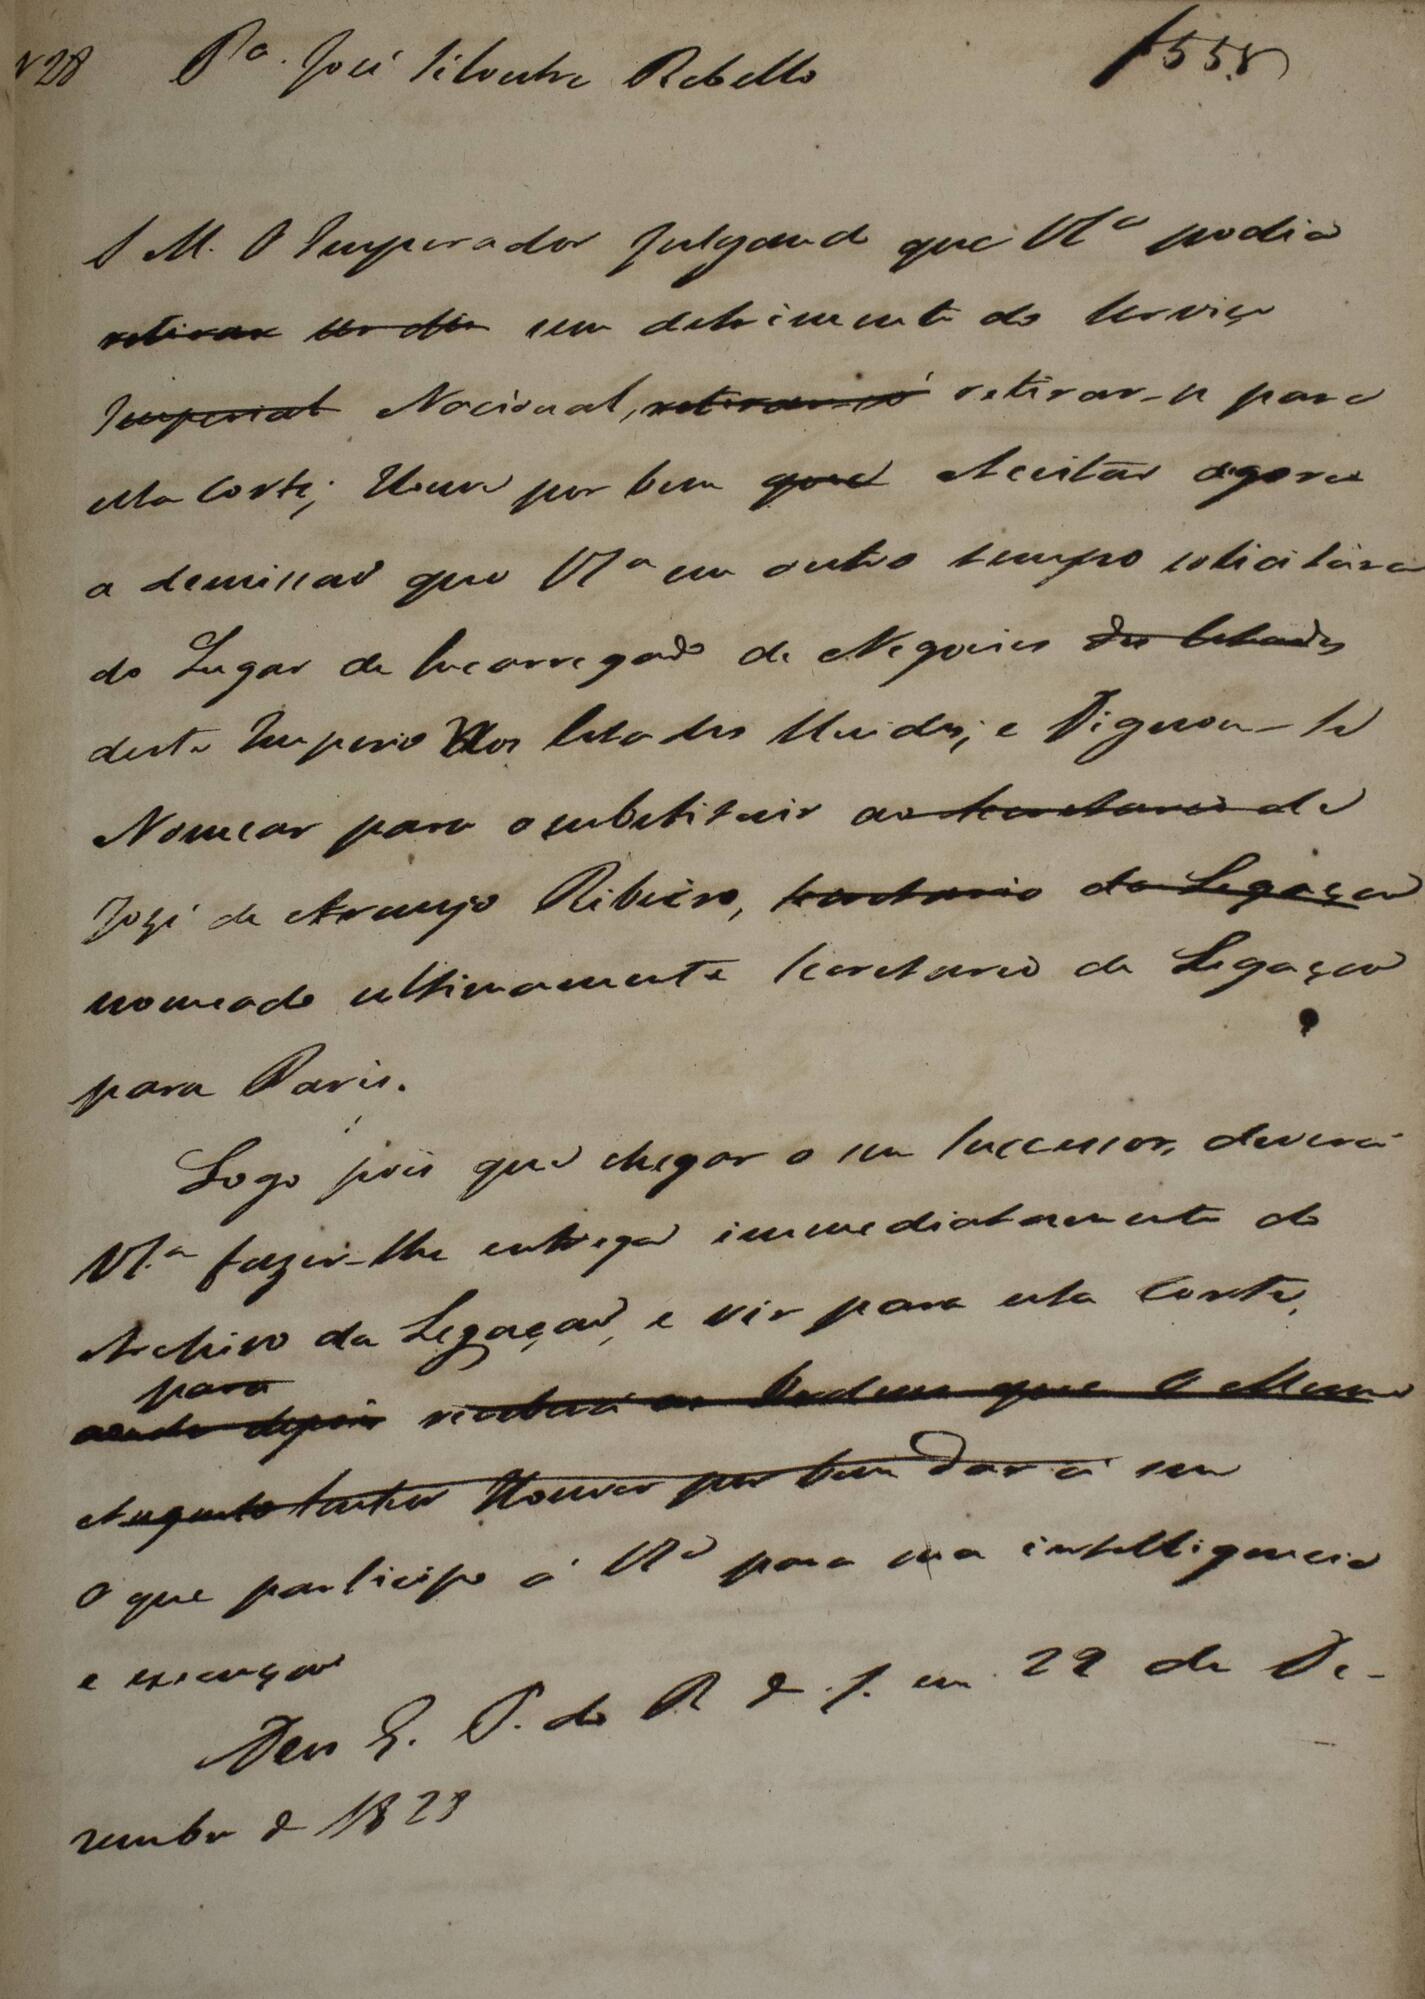 N 28 Pª. José Silvestre Rebello 1558
S M. O Imperador Julgando que VSª podia
retirar ser dim sem detrimento do Serviço
Imperial Nacional, retirar-se retirar-se para
esta Corte; Houve por bem que Aceitar agora
a demissaõ que VSª em outro tempo solicitára
do Lugar de Encarregado de Negocios dos Estados
deste Imperio nos Estados Unidos; e Dignou-Se
Nomear para o substituir ao Secretario de
José de Araujo Ribeiro, Secretario da Legaçaõ
nomeado ultimamente Secretario da Legaçaõ
para Paris.
Logo pois que chegar o seu Successor, deverá
VSª fazer-lhe entrega immediatamente do
Archivo da Legaçaõ, e vir para esta Corte,
para
aonde depois receberá as Ordens que O Mesmo
Augusto Senhor Houver por bem Dar á seu
O que participo á VSª para sua intelligencia
e execuçaõ
Deus G. P. do R de J. em 22 de De-
zembro de 1828